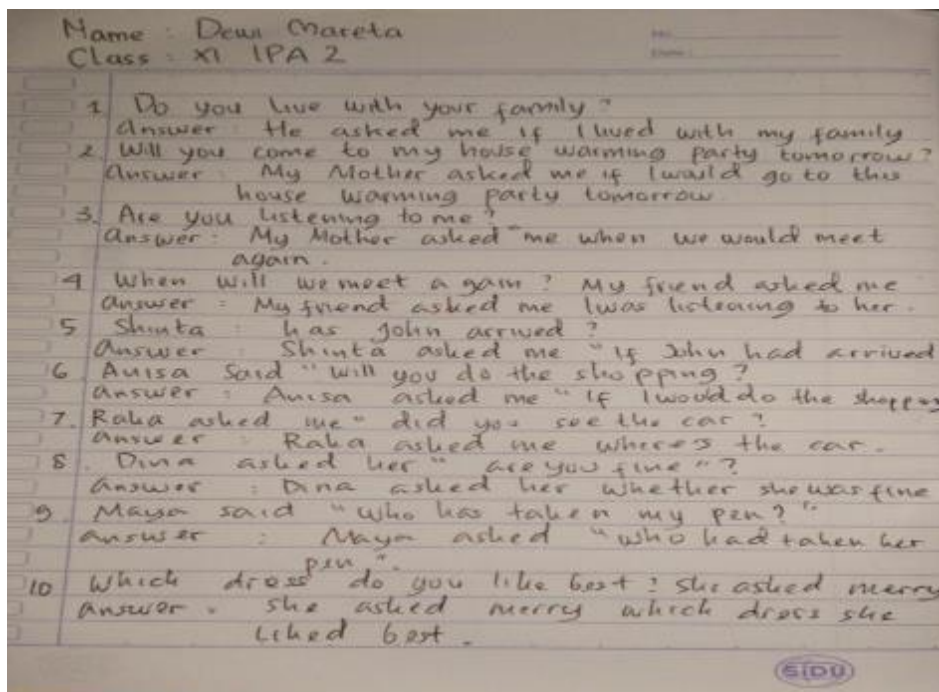 Name : Dewi Mareta
Class : XI IPA 2
1 Do you live with your family ?
Answer : He asked me if I lived with my family
2. Will you come to my house warming party tomorrow ?
Answer : My Mother asked me if I would go to this
house warming party tomorrow
3. Are you listening to me ?
Answer : My Mother asked me when we would meet
again .
4 When will we meet a gain ? My friend asked me
answer : My friend asked me I was listening to her .
5 Shinta : has John arrived ?
Answer : Shinta asked me " if John had arrived
6 Anisa said " will you do the shopping ?
answer : Anisa asked me " if I would do the shopping
7. Raka asked me " did you see the car ?
answer : Raka asked me where's the car .
8 . Dina asked her " are you fine " ?
answer : Dina asked her whether she was fine
9 Maya said " who has taken my pen ? "
answer : Maya asked " who had taken her
pen " .
10 Which dress do you like best ? She asked merry
answer . she asked merry which dress she
liked best .
SIDU